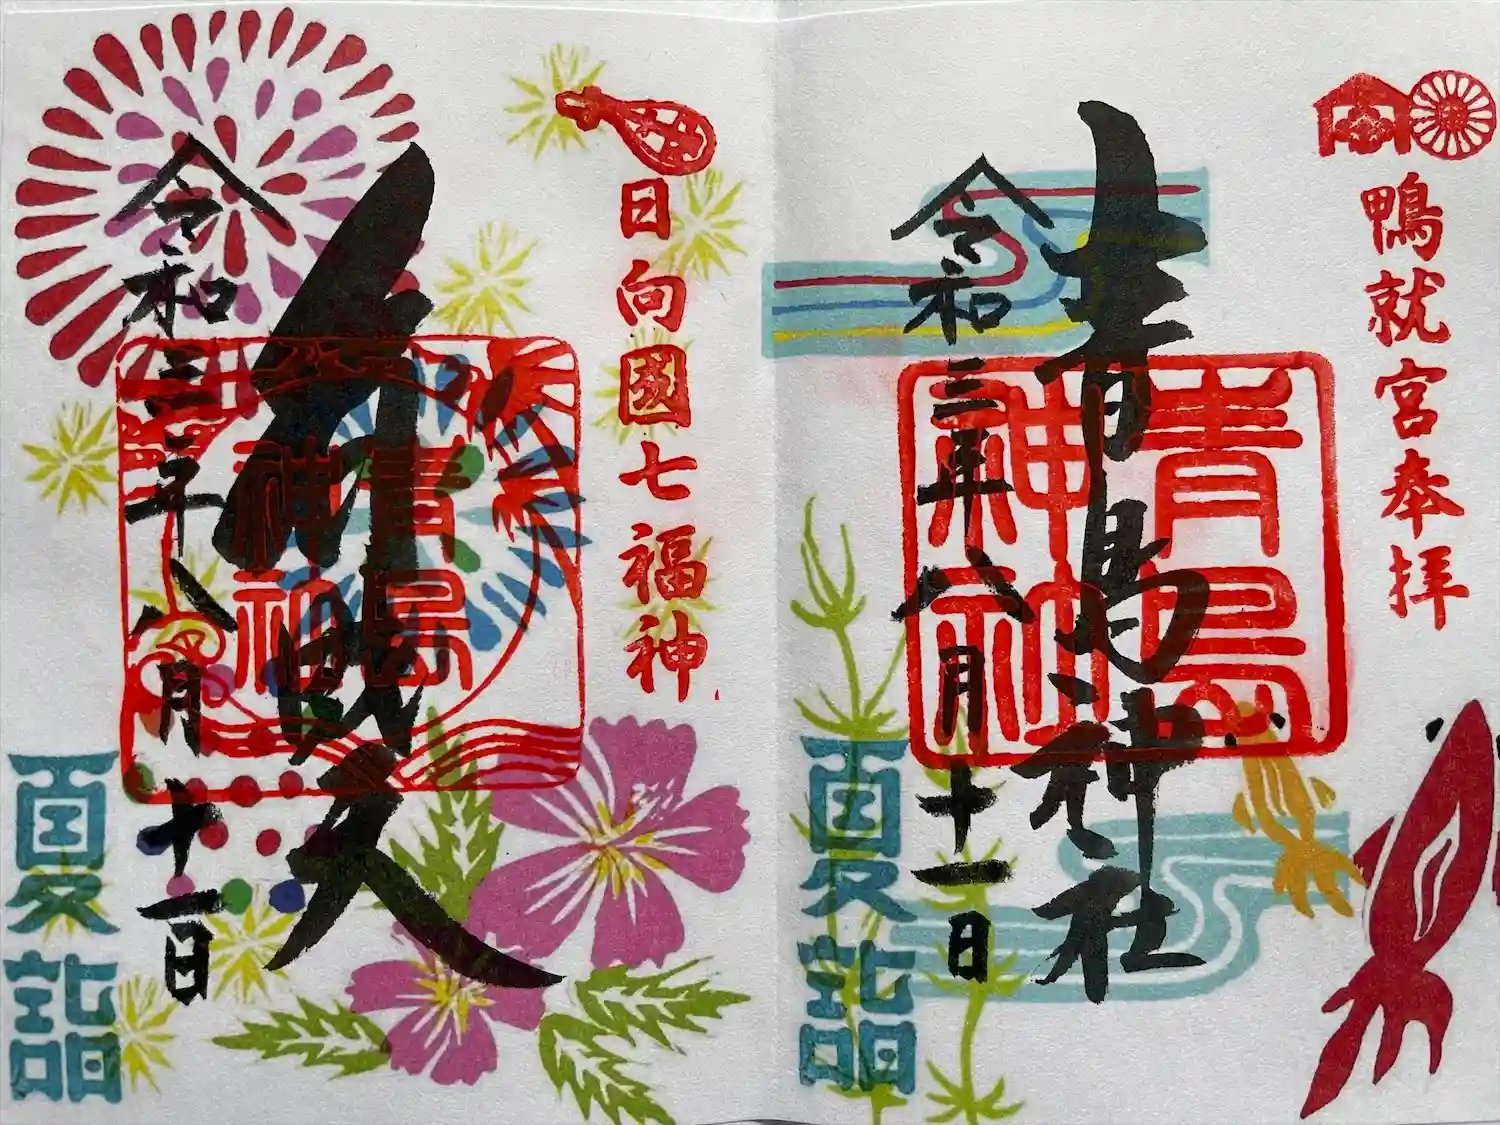 鴨就宮奉拝
青島神社
青島
神社
令和三年八月十一日
夏詣
日向國七福神
弁財天
青島
神社
令和三年八月十一日
夏詣